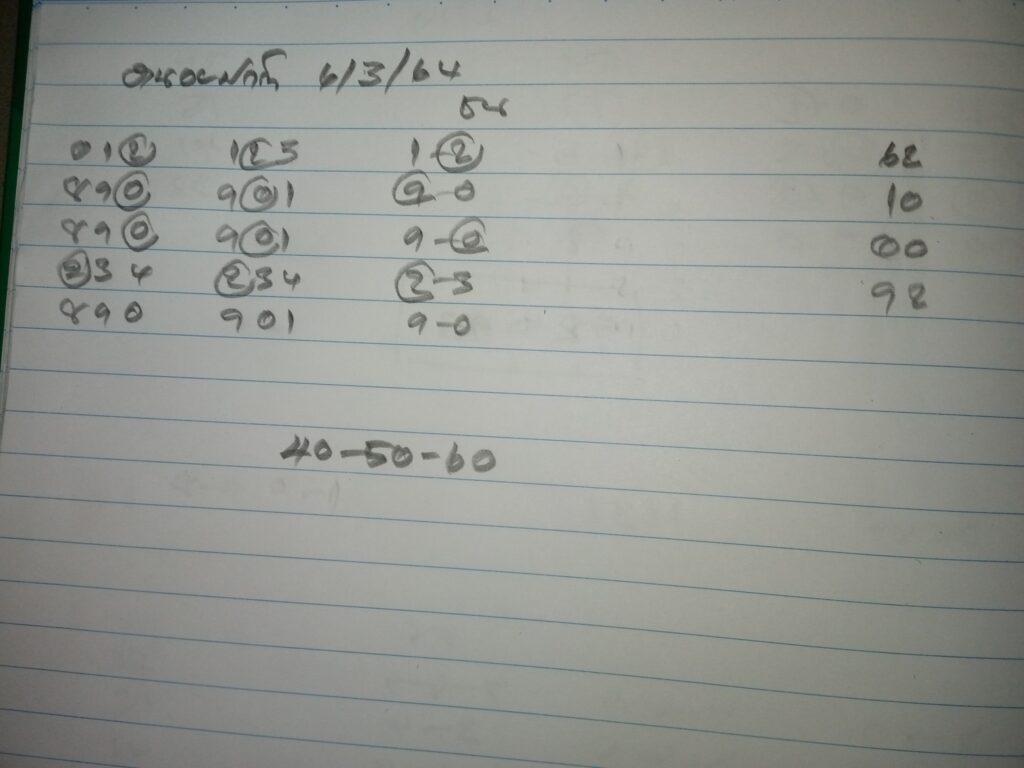 6/3/64
012 123 1-2 62
890 901 9-0 10
890 901 9-0 00
234 234 2-3 92
890 901 9-0
40-50-60